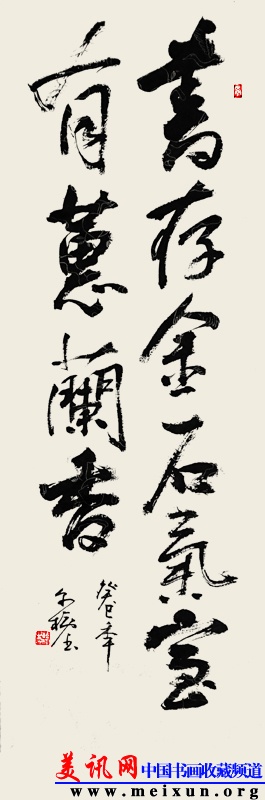 書存金石氣室
有蕙蘭香
癸巳年
美讯网 中国书画收藏频道
www.meixun.org